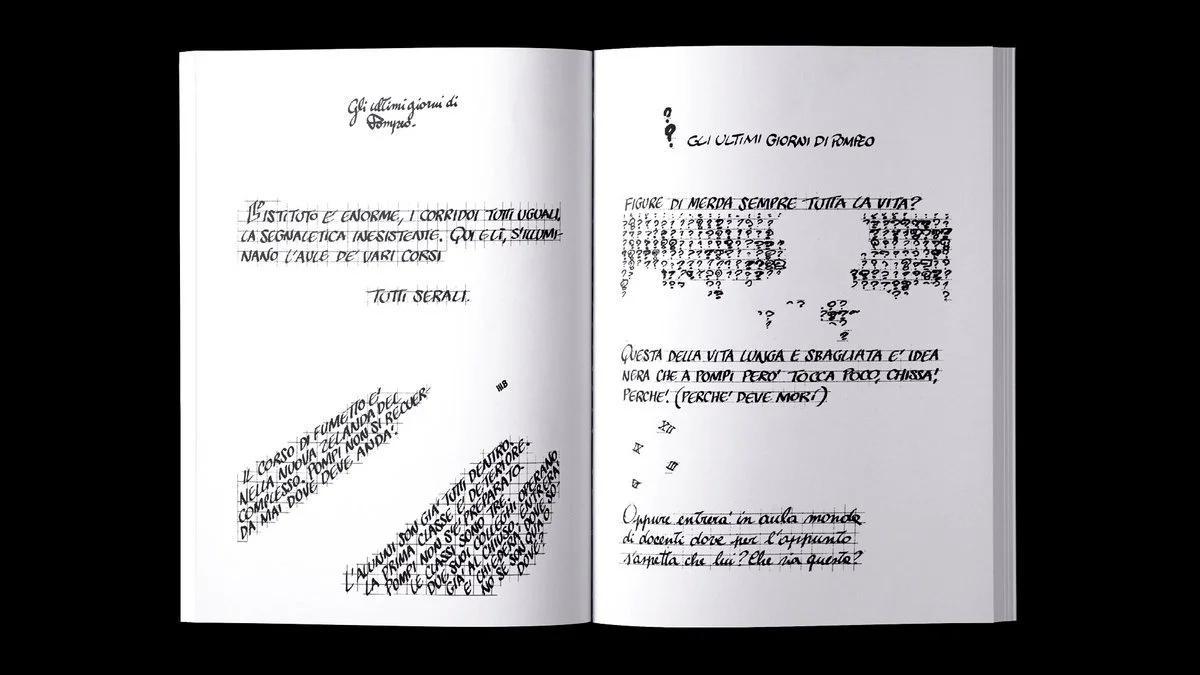 Gli ultimi giorni di
Pompeo.
L'ISTITUTO E' ENORME, I CORRIDOI TUTTI UGUALI,
LA SEGNALETICA INESISTENTE. QUI E LÌ, S'ILLUMI-
NANO L'AULE DE' VARI CORSI
TUTTI SERALI.
III.B
IL CORSO DI FUMETTO E'
NELLA NUOVA ZELANDA DEL
COMPLESSO. POMPI NON SI RECUER-
DA MAI DOVE DEVE ANDA'!
L'ALUNNI SON GIA' TUTTI DENTRO.
LA PRIMA CLASSE E' DETERIORE.
POMPI NON S'E' PREPARATO.
LE CLASSI SONO TRE.
DUE SUOI COLLEGHI OPERANO
GIA' AL CHIUSO. ENTRERÀ
E CHIEDERÀ DOVE SO-
NO SE SON QUA O
DOVE?
?
? GLI ULTIMI GIORNI DI POMPEO
FIGURE DI MERDA SEMPRE TUTTA LA VITA?
QUESTA DELLA VITA LUNGA E SBAGLIATA E' IDEA
NERA CHE A POMPI PERO' TOCCA POCO, CHISSA',
PERCHE'. (PERCHE' DEVE MORI')
XII
IX
III
VI
Oppure entrera' in aula monda
di docenti dove per l'appunto
s'aspetta che lui? Che sia questo?